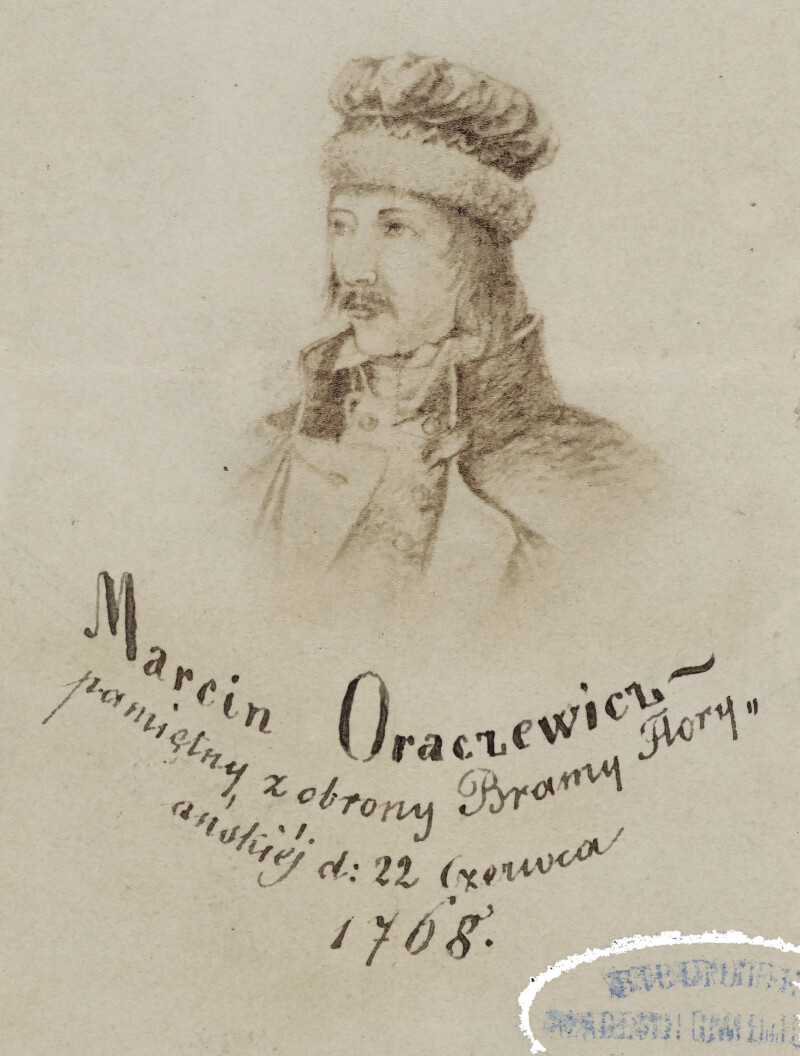 Marcin Oraczewicz~
pamiętny z obrony Bramy Flory„
ańskiéj d: 22 Czerwca
1768.